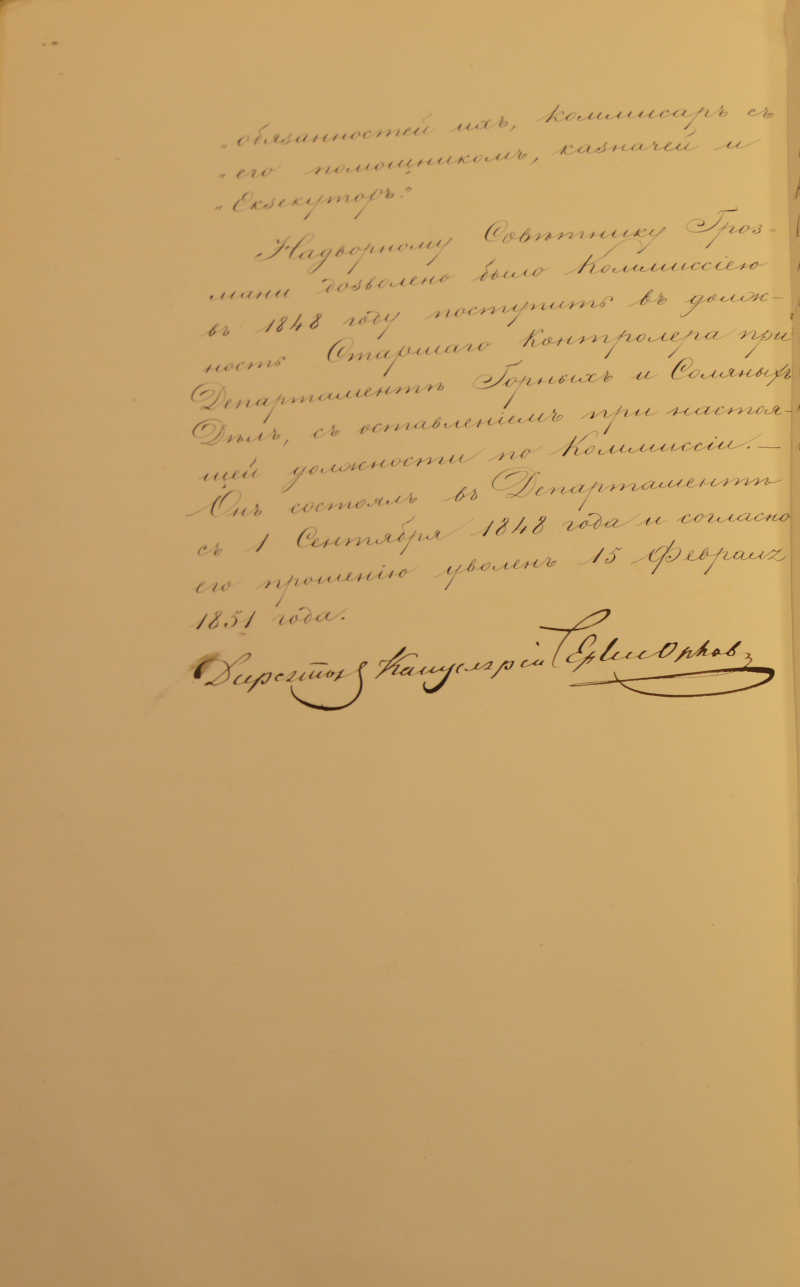 „обязанностей ихъ, коммисаръ съ
„его помощникомъ, казначей и
„Екзекуторъ."
Надворному Совѣтнику Гроз-
мани дозволено было Коммиссіею
въ 1848 году поступить въ долж-
ность Старшаго Контролера при
Департаментѣ Горныхъ и Соляныхъ
Дѣлъ, съ оставленіемъ при настоя-
щей должности по Коммиссіи. —
Онъ состоялъ въ Департаментѣ
съ 1 Сентября 1848 года и согласно
его прошенію уволенъ 15 Февраля
1851 года.
Директоръ Канцеляріи